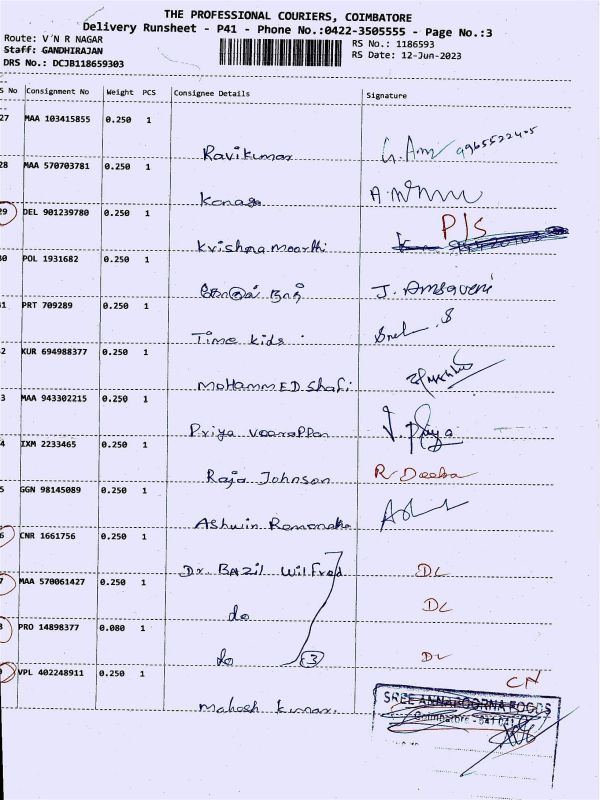 THE PROFESSIONAL COURIERS, COIMBATORE
Delivery Runsheet - P41 - Phone No.:0422-3505555 - Page No.:3
Route: V´N R NAGAR
Staff: GANDHIRAJAN
DRS No.: DCJB118659303
RS No.: 1186593
RS Date: 12-Jun-2023
S No Consignment No Weight PCS Consignee Details Signature
27 MAA 103415855 0.250 1
Ravikumar G. Am
28 MAA 570703781 0.250 1
Kanaga
29 DEL 901239780 0.250 1 P/S
Krishna moorthi
30 POL 1931682 0.250 1
J. Amsaveni
31 PRT 709289 0.250 1
Time kids Snel . S
32 KUR 694988377 0.250 1
MOHAMMED Shafi
3 MAA 943302215 0.250 1
Priya veerappan J. Priya
4 IXM 2233465 0.250 1
Raja Johnson R Deeba
5 GGN 98145089 0.250 1
Ashwin
6 CNR 1661756 0.250 1
Dr. BAZIL WilFred DL
7 MAA 570061427 0.250 1
do DL
8 PRO 14898377 0.080 1
do 3 DL
9 VPL 402248911 0.250 1 CN
Mahesh kumar.
SREE ANNAPOORNA FOODS
Coimbatore - 641 041